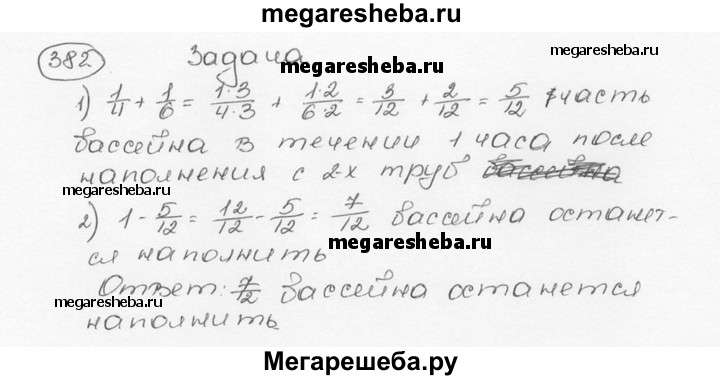 megaresheba.ru
382 Задача
megaresheba.ru
1) 1/4 + 1/6 = 1·3/4·3 + 1·2/6·2 = 3/12 + 2/12 = 5/12 часть
бассейна в течении 1 часа после
наполнения с 2х труб бассейна
megaresheba.ru
2) 1 - 5/12 = 12/12 - 5/12 = 7/12 бассейна останет-
ся наполнить
megaresheba.ru
Ответ: 7/12 бассейна останется
megaresheba.ru
наполнить
Мегарешеба.ру